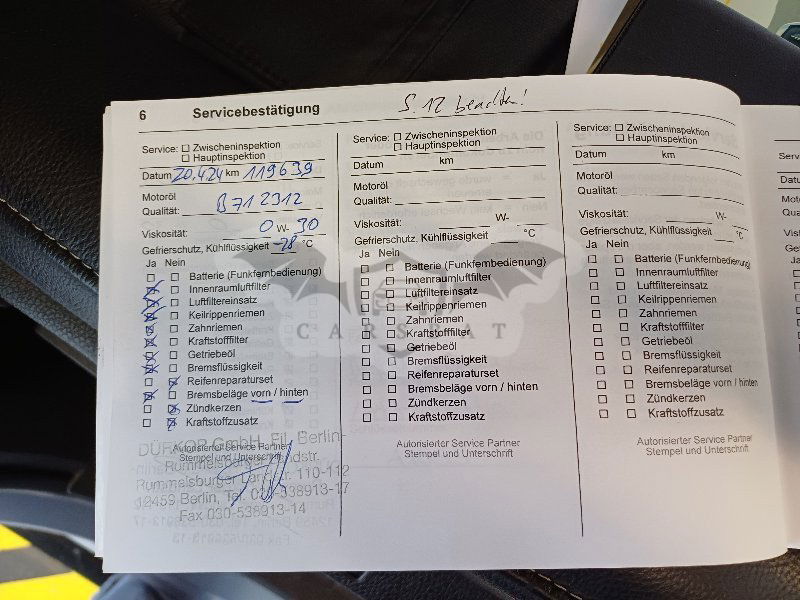 6 Servicebestätigung S. 12 beachten!
Service: ☐ Zwischeninspektion
☐ Hauptinspektion
Datum 20.4.24 km 119639
Motoröl
Qualität: B712312
Viskosität: 0 W- 30
Gefrierschutz, Kühlflüssigkeit -28 °C
Ja Nein
Batterie (Funkfernbedienung)
Innenraumluftfilter
Luftfiltereinsatz
Keilrippenriemen
Zahnriemen
Kraftstofffilter
Getriebeöl
Bremsflüssigkeit
Reifenreparaturset
Bremsbeläge vorn / hinten
Zündkerzen
Kraftstoffzusatz
Autorisierter Service Partner
Stempel und Unterschrift
GmbH, Fil. Berlin-
Rummelsburger
Rummelsburger Landstr. 110-112
12459 Berlin, Tel. 030-538913-17
Fax 030-538913-14
Service: ☐ Zwischeninspektion
☐ Hauptinspektion
Datum km
Motoröl
Qualität:
Viskosität: W-
Gefrierschutz, Kühlflüssigkeit °C
Ja Nein
Batterie (Funkfernbedienung)
Innenraumluftfilter
Luftfiltereinsatz
Keilrippenriemen
Zahnriemen
Kraftstofffilter
Getriebeöl
Bremsflüssigkeit
Reifenreparaturset
Bremsbeläge vorn / hinten
Zündkerzen
Kraftstoffzusatz
Autorisierter Service Partner
Stempel und Unterschrift
Service: ☐ Zwischeninspektion
☐ Hauptinspektion
Datum km
Motoröl
Qualität:
Viskosität: W-
Gefrierschutz, Kühlflüssigkeit °C
Ja Nein
Batterie (Funkfernbedienung)
Innenraumluftfilter
Luftfiltereinsatz
Keilrippenriemen
Zahnriemen
Kraftstofffilter
Getriebeöl
Bremsflüssigkeit
Reifenreparaturset
Bremsbeläge vorn / hinten
Zündkerzen
Kraftstoffzusatz
Autorisierter Service Partner
Stempel und Unterschrift
CARSBAT